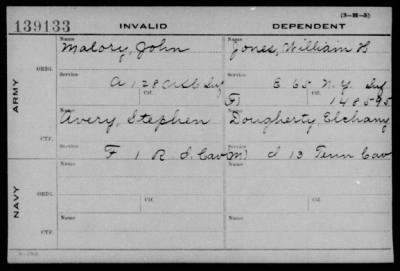 (3-H-5)
139133 INVALID DEPENDENT
Name Name
Malory, John Jones, William H
ORIG.
Service Service
A 128 Inf E 65 N.Y. Inf
Ctf. Ctf.
F) 148595
ARMY
Name Name
Avery, Stephen Dougherty, Elchany
CTF.
Service Service
F 1 R.I. Cav M) I 13 Tenn Cav
Name Name
ORIG.
Service Service
Ctf. Ctf.
NAVY
Name Name
CTF.